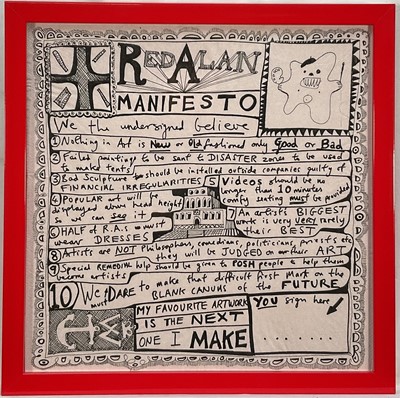 RED ALAN
MANIFESTO
We the undersigned believe
1 Nothing in Art is New or Old fashioned only Good or Bad
2 Failed paintings to be sent to DISASTER zones to be used
to make tents
3 Bad Sculpture should be installed outside companies guilty of
FINANCIAL IRREGULARITIES
4 POPULAR art will
displayed above head height
so we can see it
5 Videos should be no
longer than 10 minutes
comfy seating must be provided
6 HALF of R.A.s must
wear DRESSES
7 An artists BIGGEST
work is very very rarely
their BEST
8 Artists are NOT Philosophers, comedians, politicians, priests etc
they will be JUDGED on their ART
9 Special REMEDIAL help should be given to POSH people to help them
become artists
10 We must DARE to make that difficult first mark on the
BLANK CANVAS of the FUTURE
MY FAVOURITE ARTWORK
IS THE NEXT
ONE I MAKE
YOU sign here